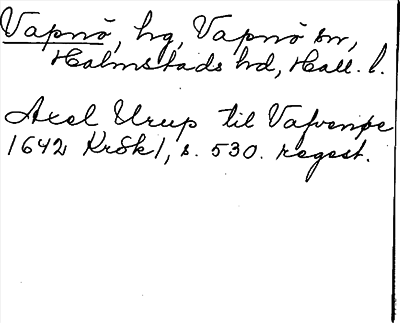 Vapnö, hg, Vapnö sn,
Halmstads hd, Hall. l.
Axel Urup til Vafvenpe
1642 KrSk 1, s. 530. regest.